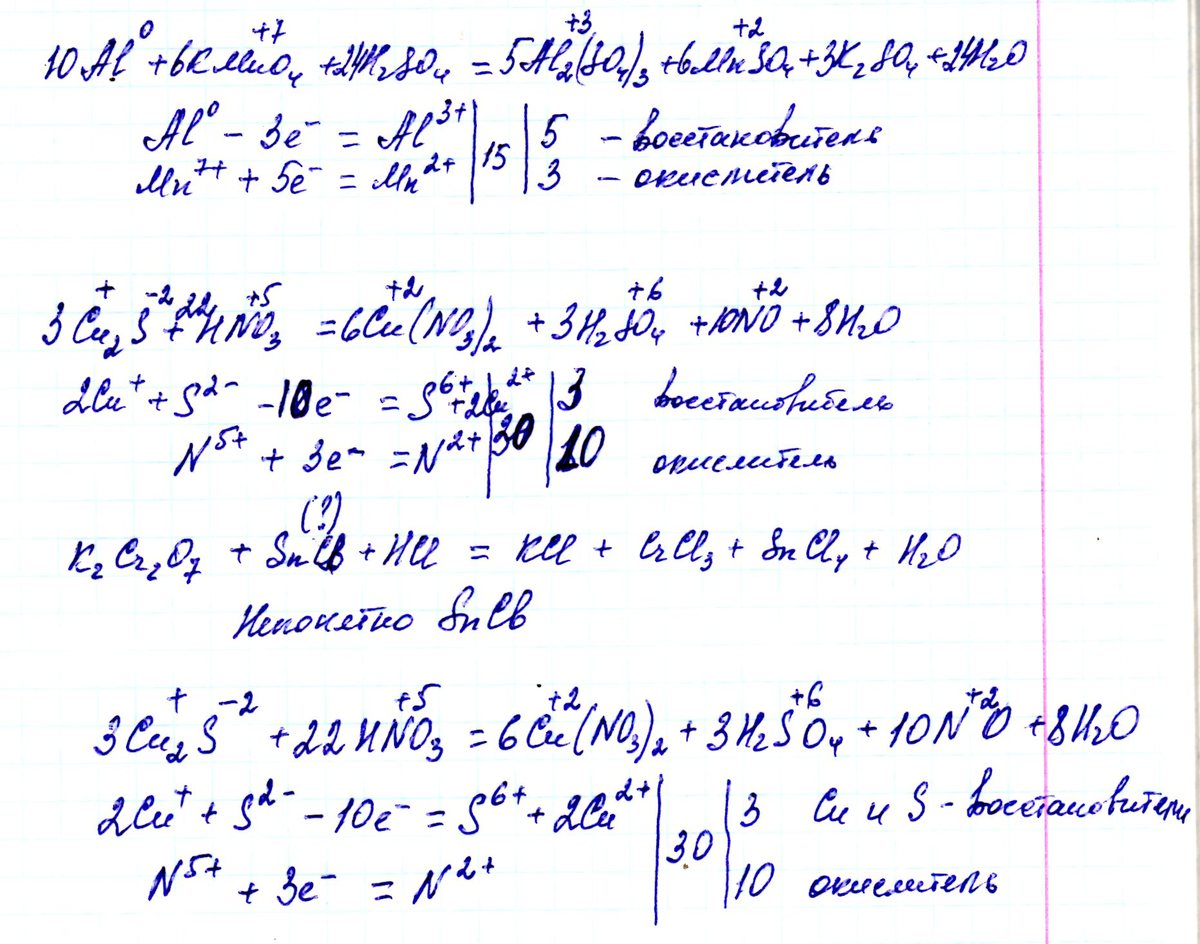 10Al⁰ + 6KMn⁺⁷O₄ + 24H₂SO₄ = 5Al₂⁺³(SO₄)₃ + 6Mn⁺²SO₄ + 3K₂SO₄ + 24H₂O
Al⁰ - 3e⁻ = Al³⁺ | 15 | 5 - восстановитель
Mn⁷⁺ + 5e⁻ = Mn²⁺ | | 3 - окислитель
3Cu₂⁺S⁻² + 22HN⁺⁵O₃ = 6Cu⁺²(NO₃)₂ + 3H₂S⁺⁶O₄ + 10N⁺²O + 8H₂O
2Cu⁺ + S²⁻ - 10e⁻ = S⁶⁺ + 2Cu²⁺ | 30 | 3 восстановитель
N⁵⁺ + 3e⁻ = N²⁺ | | 10 окислитель
(?)
K₂Cr₂O₇ + SnCB + HCl = KCl + CrCl₃ + SnCl₄ + H₂O
Непонятно SnCB
3Cu₂⁺S⁻² + 22HN⁺⁵O₃ = 6Cu⁺²(NO₃)₂ + 3H₂S⁺⁶O₄ + 10N⁺²O + 8H₂O
2Cu⁺ + S²⁻ - 10e⁻ = S⁶⁺ + 2Cu²⁺ | 30 | 3 Cu и S - восстановители
N⁵⁺ + 3e⁻ = N²⁺ | | 10 окислитель